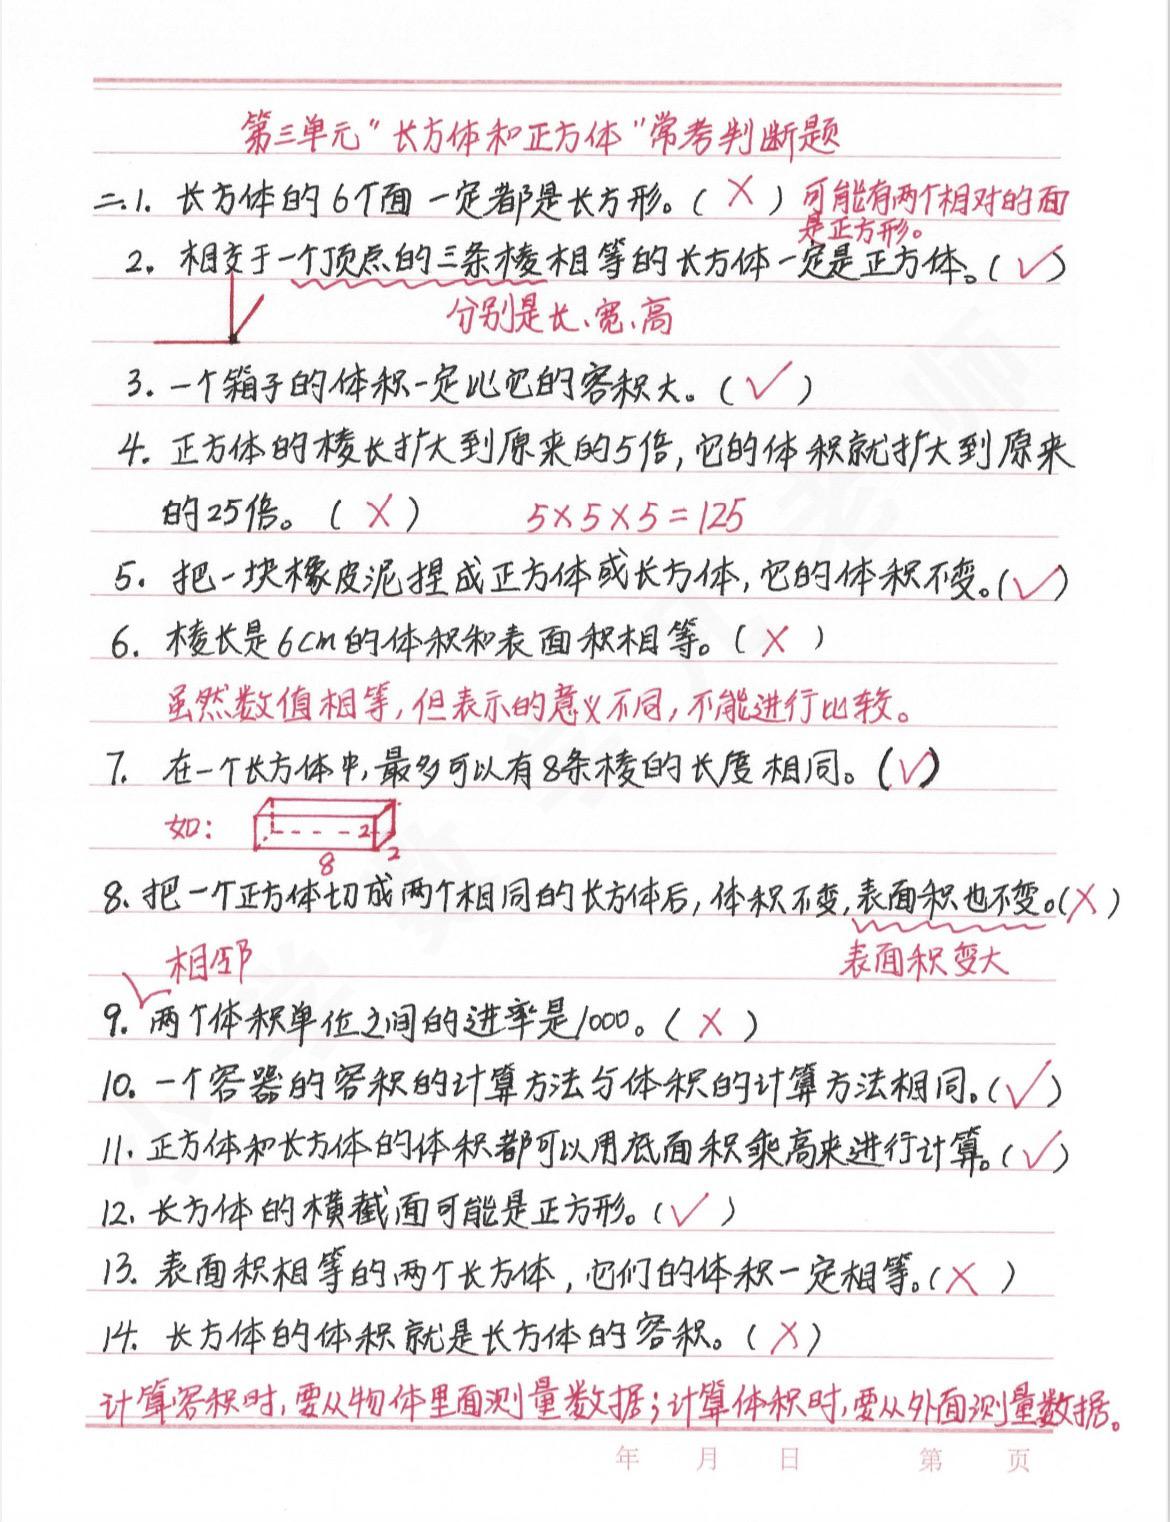 第三单元“长方体和正方体”常考判断题
二.1. 长方体的6个面一定都是长方形。( × ) 可能有两个相对的面
是正方形。
2. 相交于一个顶点的三条棱相等的长方体一定是正方体。( ✓ )
分别是长、宽、高
3. 一个箱子的体积一定比它的容积大。( ✓ )
4. 正方体的棱长扩大到原来的5倍,它的体积就扩大到原来
的25倍。( × ) 5×5×5=125
5. 把一块橡皮泥捏成正方体或长方体,它的体积不变。( ✓ )
6. 棱长是6cm的体积和表面积相等。( × )
虽然数值相等,但表示的意义不同,不能进行比较。
7. 在一个长方体中,最多可以有8条棱的长度相同。( ✓ )
如: 2
8 2
8. 把一个正方体切成两个相同的长方体后,体积不变,表面积也不变。( × )
相邻 表面积变大
9. 两个体积单位之间的进率是1000。( × )
10. 一个容器的容积的计算方法与体积的计算方法相同。( ✓ )
11. 正方体和长方体的体积都可以用底面积乘高来进行计算。( ✓ )
12. 长方体的横截面可能是正方形。( ✓ )
13. 表面积相等的两个长方体,它们的体积一定相等。( × )
14. 长方体的体积就是长方体的容积。( × )
计算容积时,要从物体里面测量数据;计算体积时,要从外面测量数据。
年 月 日 第 页